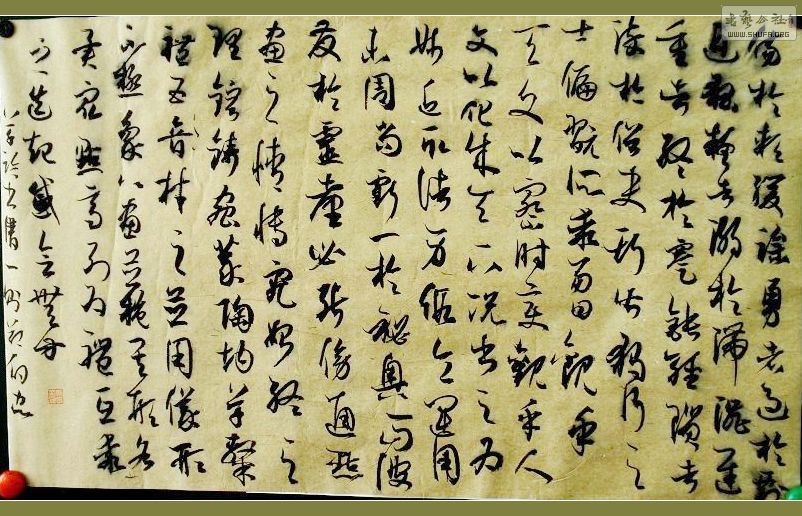 傷於軟緩躁勇者過於剽
迫狐疑者溺於滯澀遲
重者終於蹇鈍輕瑣者
染於俗吏斯皆獨行之
士偏翫所乖易曰觀乎
天文以察時變觀乎人
文以化成天下況書之為
妙近取諸身假令運用
未周尚虧工於秘奧而波
發於靈臺必能傍通點
畫之情博究始終之
理鎔鑄蟲篆陶均草隸
體五音材之並用儀形
不極象八畫並施其形各
異眾點齊列為體互乖
之迭起感會無方
論書一則
书艺公社
WWW.SHUFA.ORG